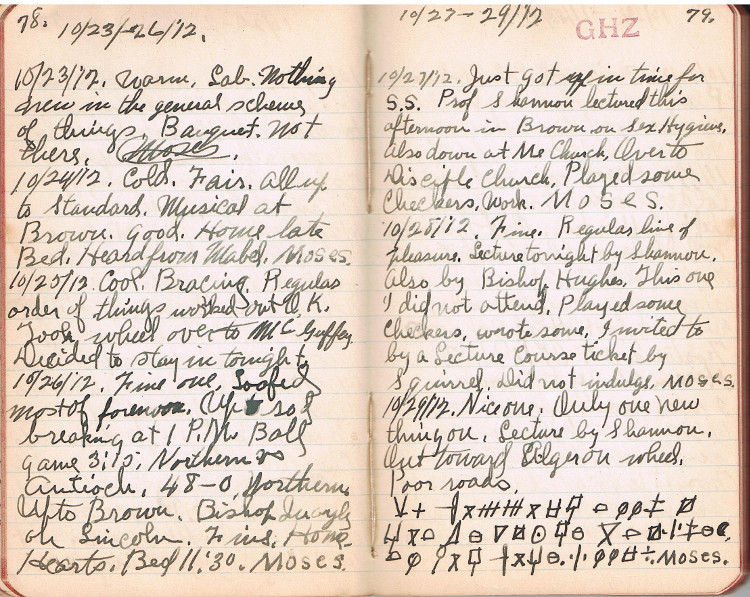 78.
10/23/-26/12.
10/23/12. Warm. Lab. Nothing
new in the general scheme
of things. Banquet. Not
there. Moses.
10/24/12. Cold. Fair. All up
to Standard. Musical at
Brown. Good. Home late
Bed. Heard from Mabel. Moses.
10/25/12. Cool. Bracing. Regular
order of things worked out O.K.
Took wheel over to McGuffey
Decided to stay in tonight.
10/26/12. Fine one. Loafed
most of forenoon. Up to sod
breaking at 1 P.M. Ball
game 3:15; Northern vs
Antioch. 48-0, Northern.
Up to Brown. Bishop Quayle
on Lincoln. Fine. Home
Hearts. Bed 11:30. Moses.
10/27-29/12
GHZ
79.
10/27/12. Just got up in time for
S.S. Prof Shannon lectured this
afternoon in Brown on Sex Hygiene.
Also down at Me Church. Over to
Disciple Church. Played some
Checkers. Work. Moses.
10/28/12. Fine. Regular line of
pleasure. Lecture tonight by Shannon.
Also by Bishop Hughes. This one
I did not attend. Played some
Checkers, wrote some. Invited to
by a Lecture Course ticket by
Squirrel. Did not indulge. Moses.
10/29/12. Nice one. Only one new
thing on. Lecture by Shannon.
Out toward on wheel.
Poor roads.
Moses.